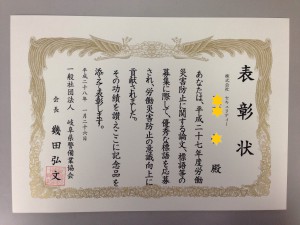 表彰状
株式会社 セキュリティー
殿
あなたは、平成二十七年度労働
災害防止に関する論文、標語等の
募集に際して、優秀な標語を応募
され、労働災害防止の意識向上に
貢献されました。
その功績を讃えここに記念品を
添えて表彰します。
平成二十八年 一月二十六日
一般社団法人 岐阜県警備業協会
会長 幾田弘文